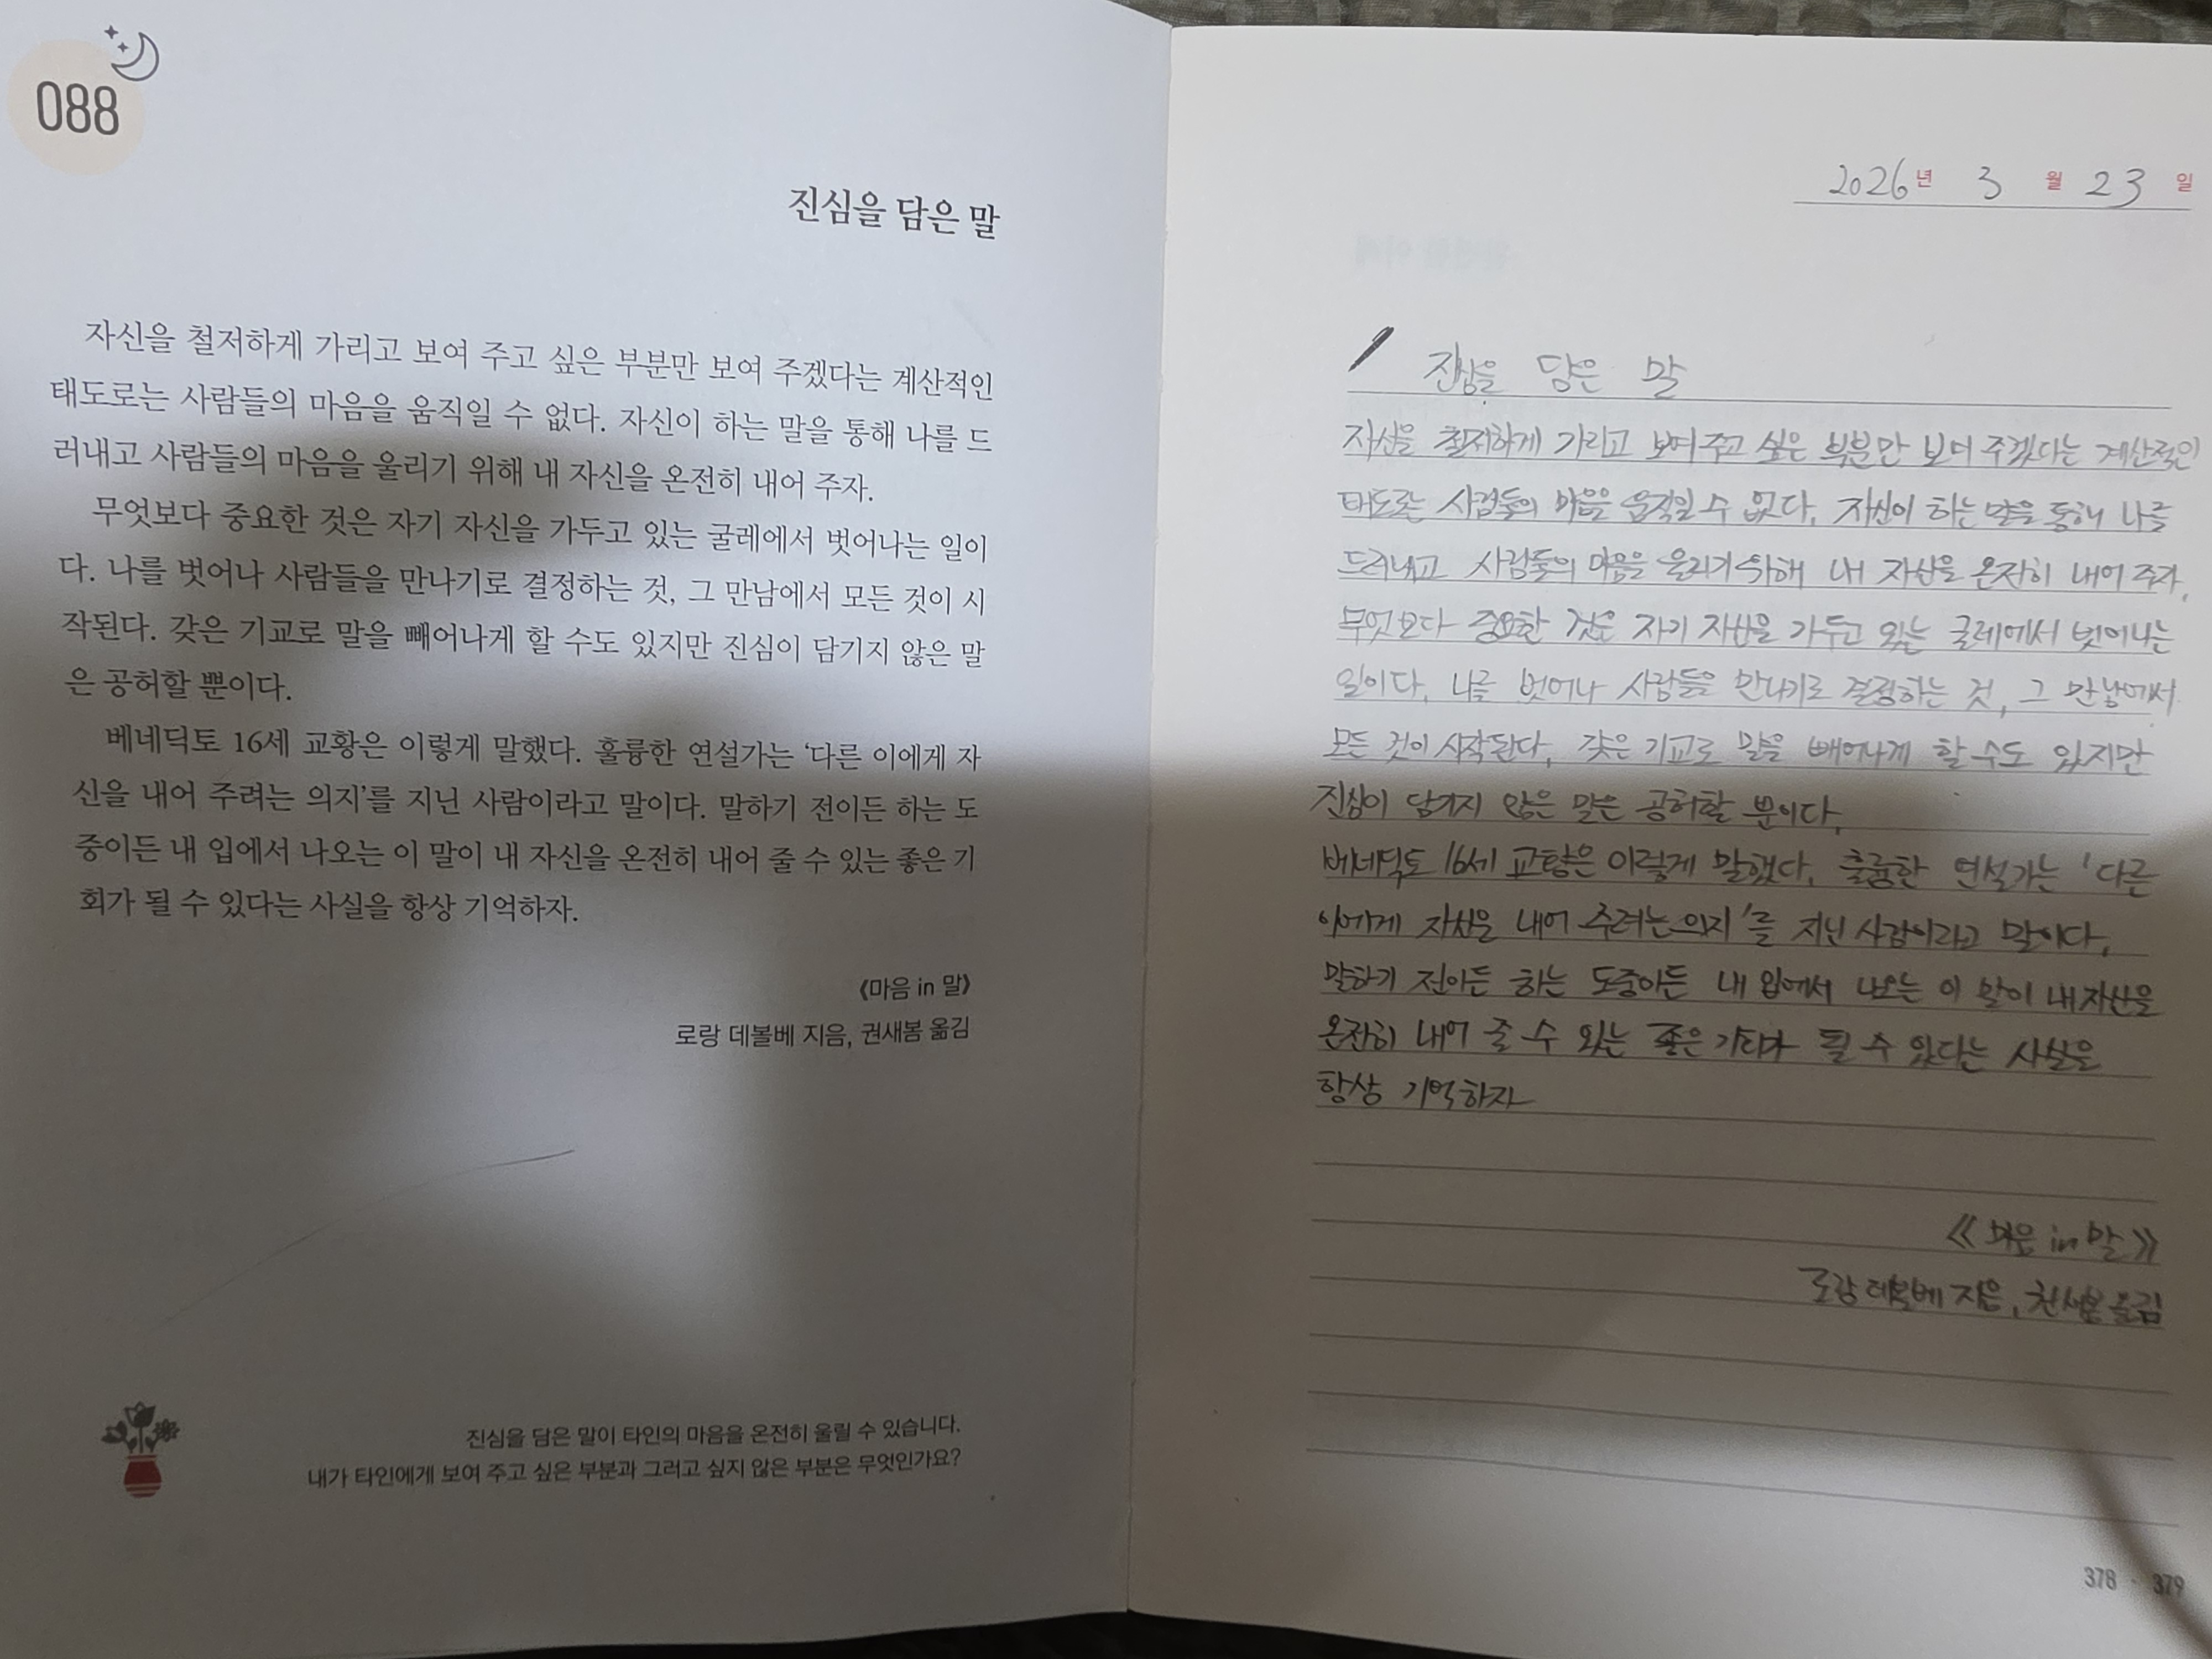 088
진심을 담은 말
자신을 철저하게 가리고 보여 주고 싶은 부분만 보여 주겠다는 계산적인
태도로는 사람들의 마음을 움직일 수 없다. 자신이 하는 말을 통해 나를 드
러내고 사람들의 마음을 울리기 위해 내 자신을 온전히 내어 주자.
무엇보다 중요한 것은 자기 자신을 가두고 있는 굴레에서 벗어나는 일이
다. 나를 벗어나 사람들을 만나기로 결정하는 것, 그 만남에서 모든 것이 시
작된다. 갖은 기교로 말을 빼어나게 할 수도 있지만 진심이 담기지 않은 말
은 공허할 뿐이다.
베네딕토 16세 교황은 이렇게 말했다. 훌륭한 연설가는 ‘다른 이에게 자
신을 내어 주려는 의지’를 지닌 사람이라고 말이다. 말하기 전이든 하는 도
중이든 내 입에서 나오는 이 말이 내 자신을 온전히 내어 줄 수 있는 좋은 기
회가 될 수 있다는 사실을 항상 기억하자.
《마음 in 말》
로랑 데볼베 지음, 권새봄 옮김
진심을 담은 말이 타인의 마음을 온전히 울릴 수 있습니다.
내가 타인에게 보여 주고 싶은 부분과 그러고 싶지 않은 부분은 무엇인가요?
2026년 3월 23일
진심을 담은 말
자신을 철저하게 가리고 보여 주고 싶은 부분만 보여 주겠다는 계산적인
태도로는 사람들의 마음을 움직일 수 없다. 자신이 하는 말을 통해 나를
드러내고 사람들의 마음을 울리기 위해 내 자신을 온전히 내어 주자.
무엇보다 중요한 것은 자기 자신을 가두고 있는 굴레에서 벗어나는
일이다. 나를 벗어나 사람들을 만나기로 결정하는 것, 그 만남에서
모든 것이 시작된다. 갖은 기교로 말을 빼어나게 할 수도 있지만
진심이 담기지 않은 말은 공허할 뿐이다.
베네딕토 16세 교황은 이렇게 말했다. 훌륭한 연설가는 '다른
이에게 자신을 내어 주려는 의지'를 지닌 사람이라고 말이다.
말하기 전이든 하는 도중이든 내 입에서 나오는 이 말이 내 자신을
온전히 내어 줄 수 있는 좋은 기회가 될 수 있다는 사실을
항상 기억하자
《마음 in 말》
로랑 데볼베 지음, 옮김
378 · 379